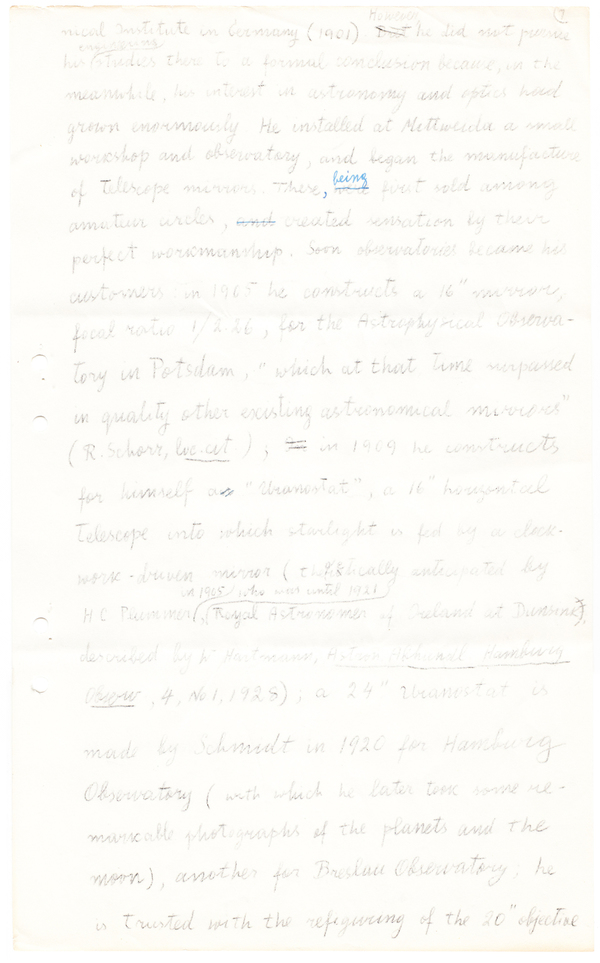 7
However
nical Institute in Germany (1901) But he did not pursue
engineering
his studies there to a formal conclusion because, in the
meanwhile, his interest in astronomy and optics had
grown enormously He installed at Mittweida a small
workshop and observatory, and began the manufacture
being
of telescope mirrors. These, were first sold among
amateur circles, and created sensation by their
perfect workmanship. Soon observatories became his
customers: in 1905 he constructs a 16" mirror,
focal ratio 1/2.26, for the Astrophysical Observa-
tory in Potsdam, "which at that time surpassed
in quality other existing astronomical mirrors"
(R. Schorr, loc.cit); in 1909 he constructs
for himself a "Uranostat", a 16" horizontal
telescope into which starlight is fed by a clock-
work-driven mirror ( anticipated by
in 1905 who was until 1921
H C Plummer, Royal Astronomer of Ireland at Dunsink,
described by Hartmann, Hamburg
Observ, 4, No 1, 1928); a 24" Uranostat is
made by Schmidt in 1920 for Hamburg
Observatory (with which he later took some re-
markable photographs of the planets and the
moon), another for Breslau Observatory; he
is trusted with the refiguring of the 20" objective